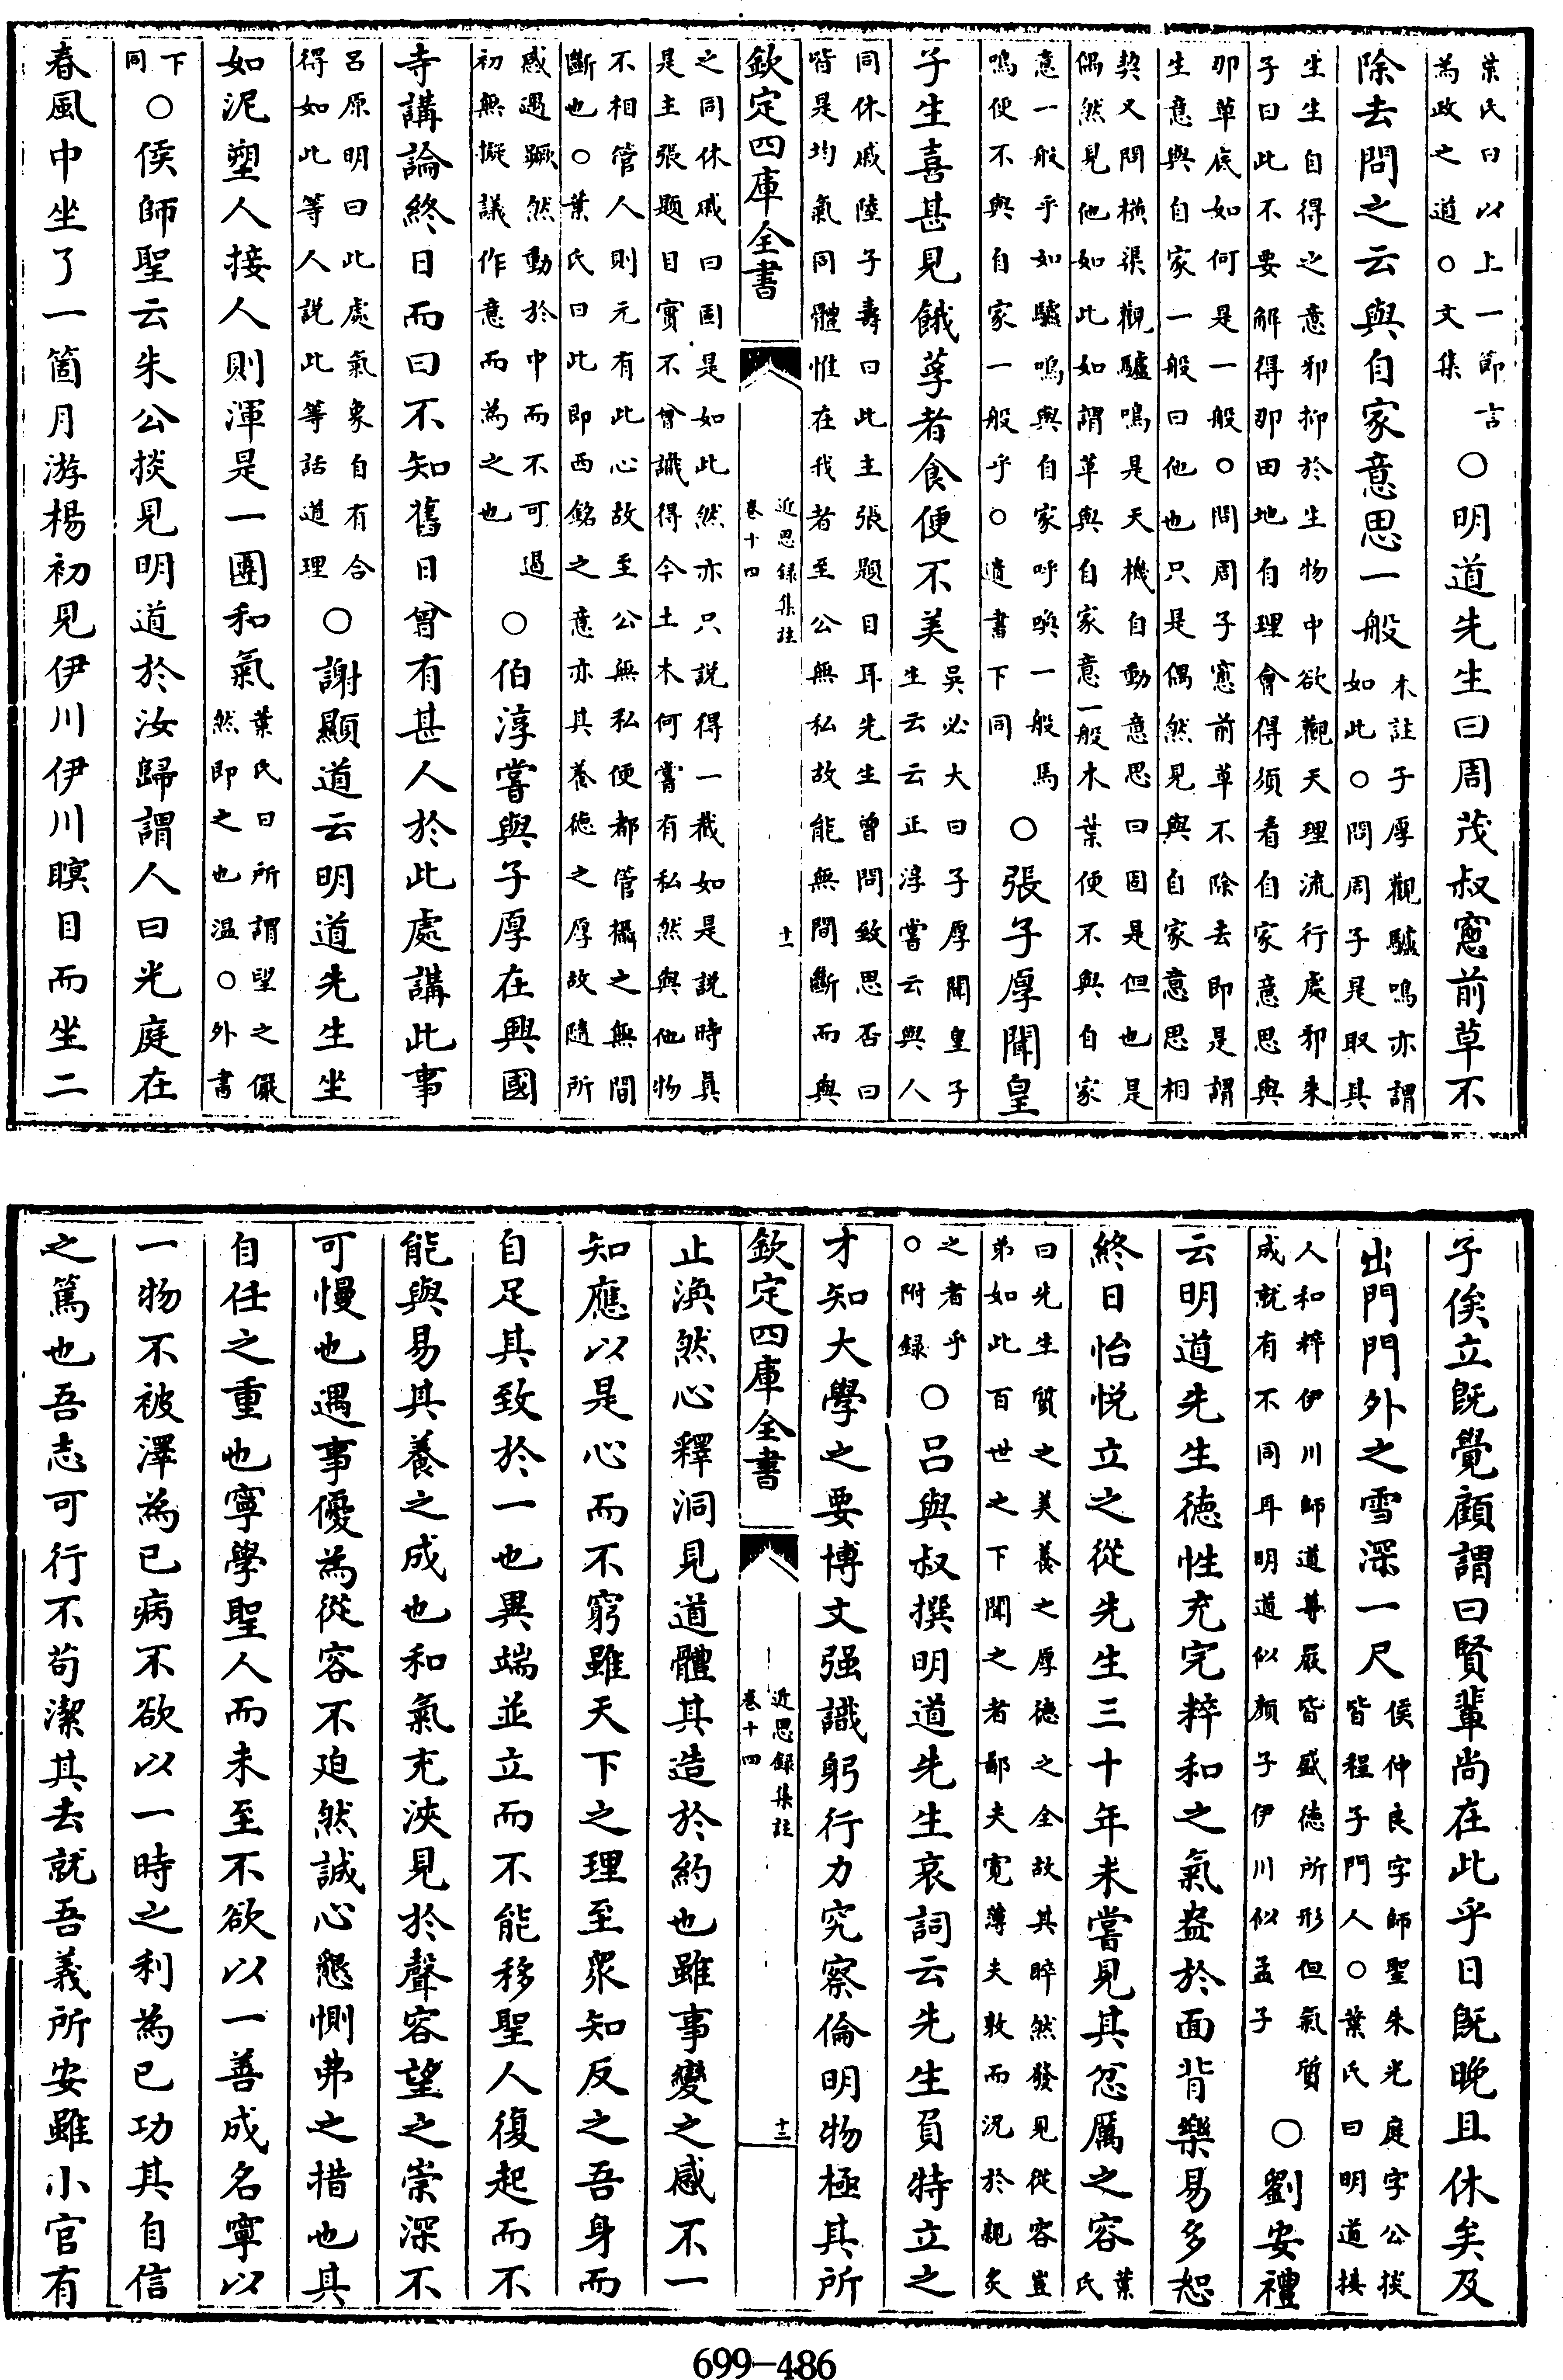 葉氏曰以上一節言
為政之道○文集
○明道先生曰周茂叔窻前草不
除去問之云與自家意思一般
本註子厚觀驢鳴亦謂
如此○問周子是取其
生生自得之意邪抑於生物中欲觀天理流行處邪朱
子曰此不要解得那田地自理會得須看自家意思與
那草底如何是一般○問周子窻前草不除去即是謂
生意與自家一般曰他也只是偶然見與自家意思相
契又問橫渠觀驢鳴是天機自動意思曰固是但也是
偶然見他如此如謂草與自家意一般木葉便不與自家
意一般乎如驢鳴與自家呼喚一般馬
鳴便不與自家一般乎○遺書下同
○張子厚聞皇
子生喜甚見餓莩者食便不美
吳必大曰子厚聞皇子
生云云正淳嘗云與人
同休戚陸子壽曰此主張題目耳先生曾問致思否曰
皆是均氣同體惟在我者至公無私故能無間斷而與
欽定四庫全書
近思録集註
卷十四
十一
之同休戚曰固是如此然亦只說得一截如是說時真
是主張題目實不曾識得今土木何嘗有私然與他物
不相管人則元有此心故至公無私便都管攝之無間
斷也○葉氏曰此即西銘之意亦其養德之厚故隨所
感遇蹶然動於中而不可遏
初無擬議作意而為之也
○伯淳嘗與子厚在興國
寺講論終日而曰不知舊日曾有甚人於此處講此事
呂原明曰此處氣象自有合
得如此等人說此等話道理
○謝顯道云明道先生坐
如泥塑人接人則渾是一團和氣
葉氏曰所謂望之儼
然即之也温○外書
下
同
○侯師聖云朱公掞見明道於汝歸謂人曰光庭在
春風中坐了一箇月游楊初見伊川伊川瞑目而坐二
子俟立既覺顧謂曰賢輩尚在此乎日既晚且休矣及
出門門外之雪深一尺
侯仲良字師聖朱光庭字公掞
皆程子門人○葉氏曰明道接
人和粹伊川師道尊嚴皆盛德所形但氣質
成就有不同耳明道似顏子伊川似孟子
○劉安禮
云明道先生德性充完粹和之氣盎於面背樂易多恕
終日怡悅立之從先生三十年未嘗見其忿厲之容
葉
氏
曰先生質之美養之厚德之全故其睟然發見從容豈
弟如此百世之下聞之者鄙夫寬薄夫敦而況於親炙
之者乎
○附録
○呂與叔撰明道先生哀詞云先生負特立之
才知大學之要博文强識躬行力究察倫明物極其所
欽定四庫全書
近思録集註
卷十四
十二
止渙然心釋洞見道體其造於約也雖事變之感不一
知應以是心而不窮雖天下之理至衆知反之吾身而
自足其致於一也異端並立而不能移聖人復起而不
能與易其養之成也和氣充浹見於聲容望之崇深不
可慢也遇事優為從容不迫然誠心懇惻弗之措也其
自任之重也寧學聖人而未至不欲以一善成名寧以
一物不被澤為己病不欲以一時之利為己功其自信
之篤也吾志可行不苟潔其去就吾義所安雖小官有
699-486